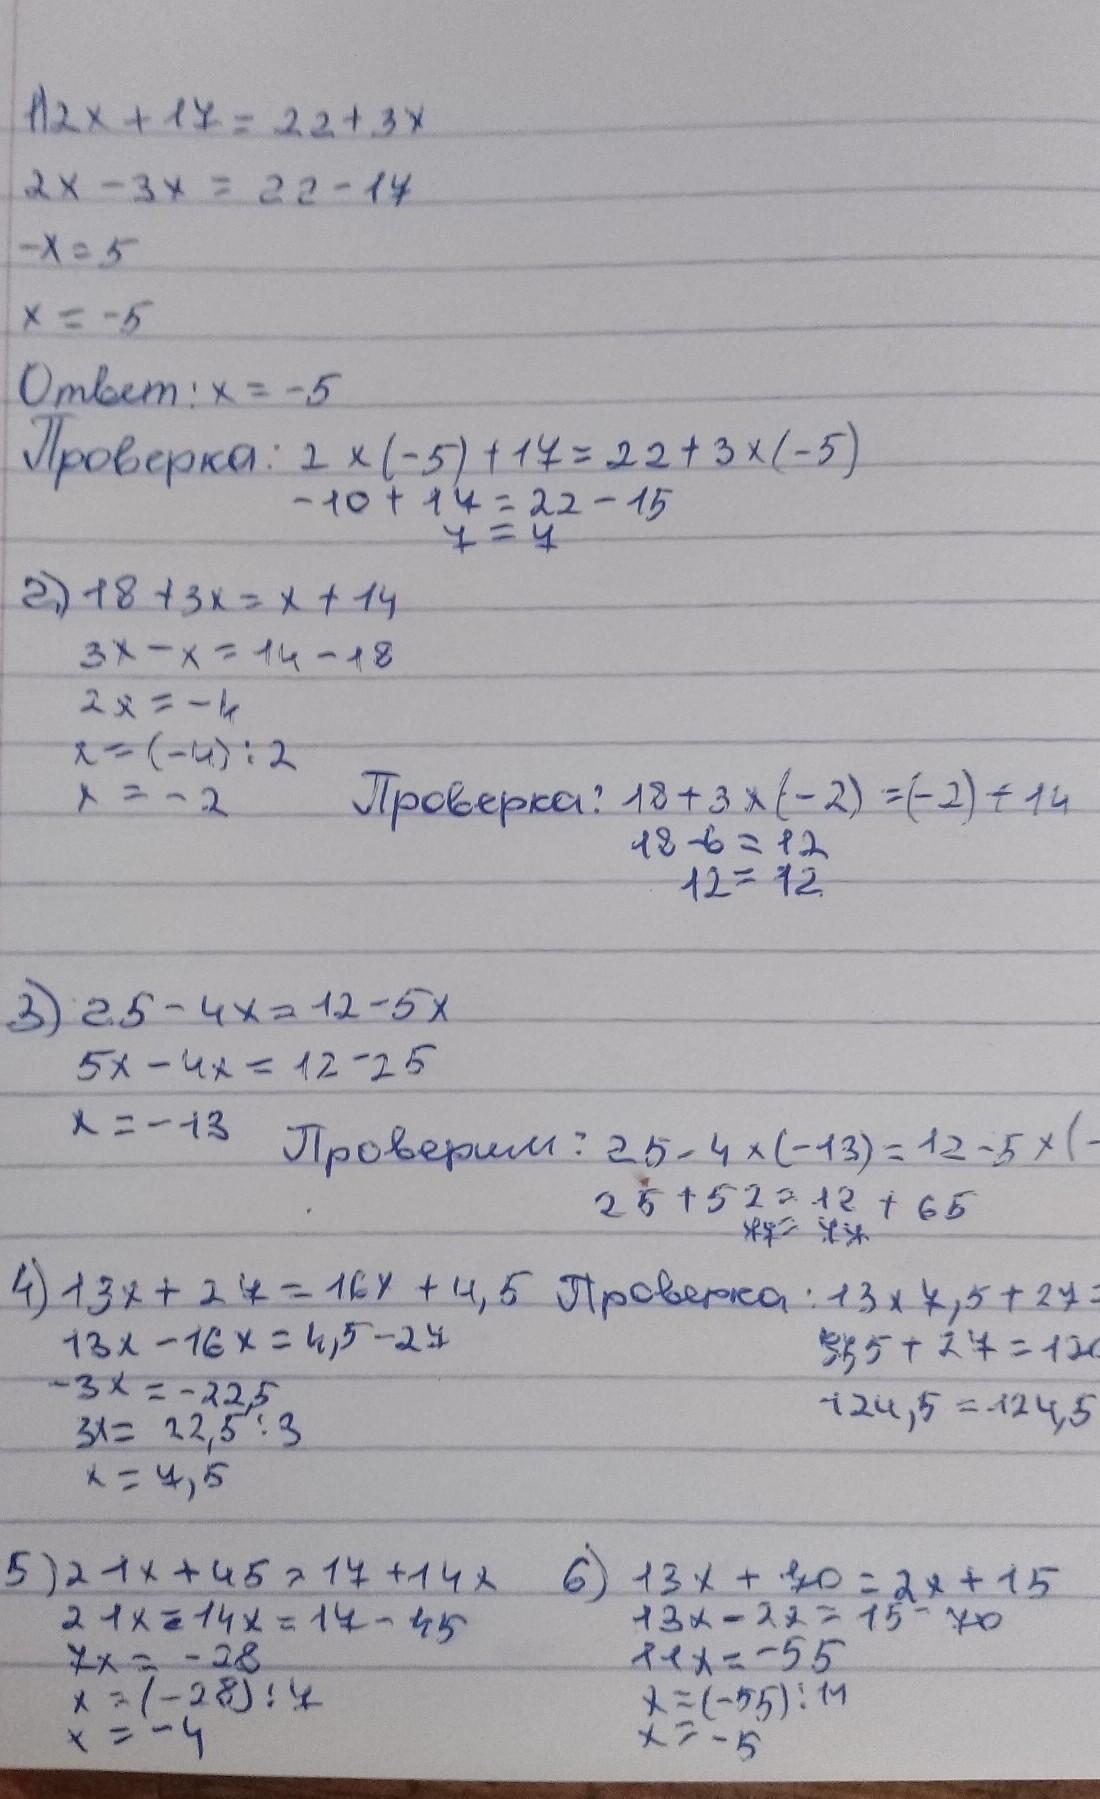 1) 2x + 17 = 22 + 3x
2x - 3x = 22 - 17
-x = 5
x = -5
Ответ: x = -5
Проверка: 2 x (-5) + 17 = 22 + 3 x (-5)
-10 + 17 = 22 - 15
7 = 7
2) 18 + 3x = x + 14
3x - x = 14 - 18
2x = -4
x = (-4) : 2
x = -2
Проверка: 18 + 3 x (-2) = (-2) + 14
18 - 6 = 12
12 = 12
3) 25 - 4x = 12 - 5x
5x - 4x = 12 - 25
x = -13
Проверим: 25 - 4 x (-13) = 12 - 5 x (-
25 + 52 = 12 + 65
77 = 77
4) 13x + 27 = 16x + 4,5
13x - 16x = 4,5 - 27
-3x = -22,5
3x = 22,5 : 3
x = 7,5
Проверка: 13 x 7,5 + 27 =
5 + 27 = 120
124,5 = 124,5
5) 21x + 45 = 17 + 14x
21x = 14x = 17 - 45
7x = -28
x = (-28) : 7
x = -4
6) 13x + 70 = 2x + 15
13x - 2x = 15 - 70
11x = -55
x = (-55) : 11
x = -5